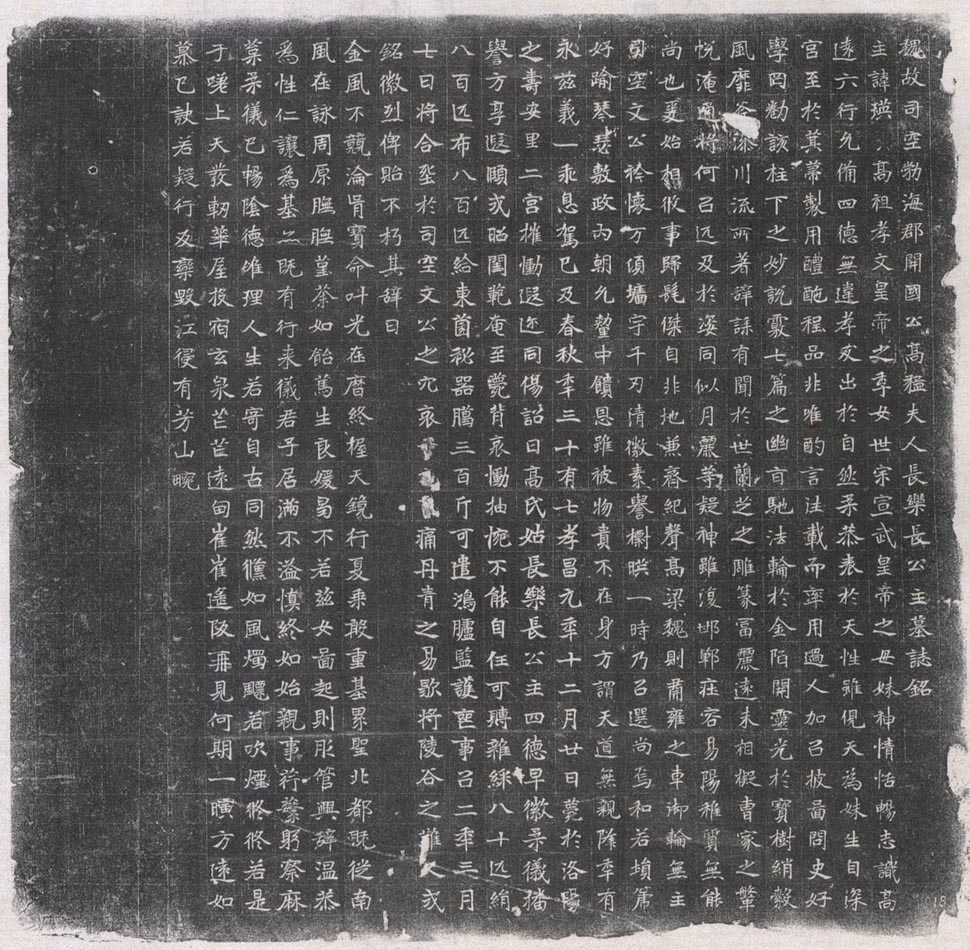 魏故司空勃海郡開國公高猛夫人長樂長公主墓誌銘
主諱瑛高祖孝文皇帝之季女世宗宣武皇帝之母妹神情恬暢志識高
遠六行允備四德無違孝友出於自然柔恭表於天性雖俔天為妹生自深
宮至於箕幕製用醴酏程品非唯酌言法載而率用過人加㠯披啚問史好
學罔勌該柱下之妙說覈七篇之幽旨馳法輪於金陌開靈光於寶樹綃縠
風靡谷深川流所著辭誄有聞於世蘭芝之雕篆富麗遠未相擬曹家之馨
悅淹通將何㠯匹及於姿同似月麗等疑神雖復邯鄲莊容易陽稚質無能
尚也爰始相攸事歸髦傑自非地兼齊紀聲高梁魏則肅雍之車御輪無主
司空文公衿懷万傾墻宇千刃情徽素譽傾暎一時乃㠯選尚焉和若塤箎
好踰琴瑟敷政內朝允釐中饋恩雖被物貴不在身方謂天道無親降年有
永茲義一乖息駕已及春秋年三十有七孝昌元年十二月廿日薨於洛陽
之壽安里二宮摧慟遐迩同傷詔曰高氏姑長樂長公主四德早徽柔儀播
譽方享遐頤式昭閨範奄至薨背哀慟抽惋不能自任可賻雜綵八十匹絹
八百匹布八百匹給東園秘器臈三百斤可遣鴻臚監護喪事㠯二年三月
七日將合塟於司空文公之穴哀痛丹青之易歇將陵谷之難久或
銘徽烈俾貽不朽其辭曰
金風不競淪胥寶命叶光在曆終握天鏡行夏乘殷重基累聖北都既從南
風在詠周原膴膴堇荼如飴篤生良媛曷不若茲女啚起則彤管興辭溫恭
為性仁讓為基亦既有行来儀君子居滿不溢慎終如始親事荇蘩躬察麻
枲柔儀已暢陰德維理人生若寄自古同然儵如風燭飄若吹煙終終若是
于嗟上天發軔華屋授宿玄泉芒芒遠甸崔崔遙阪再見何期一曠方遠如
慕已訣若疑行及欒毀江侵有芳山畹